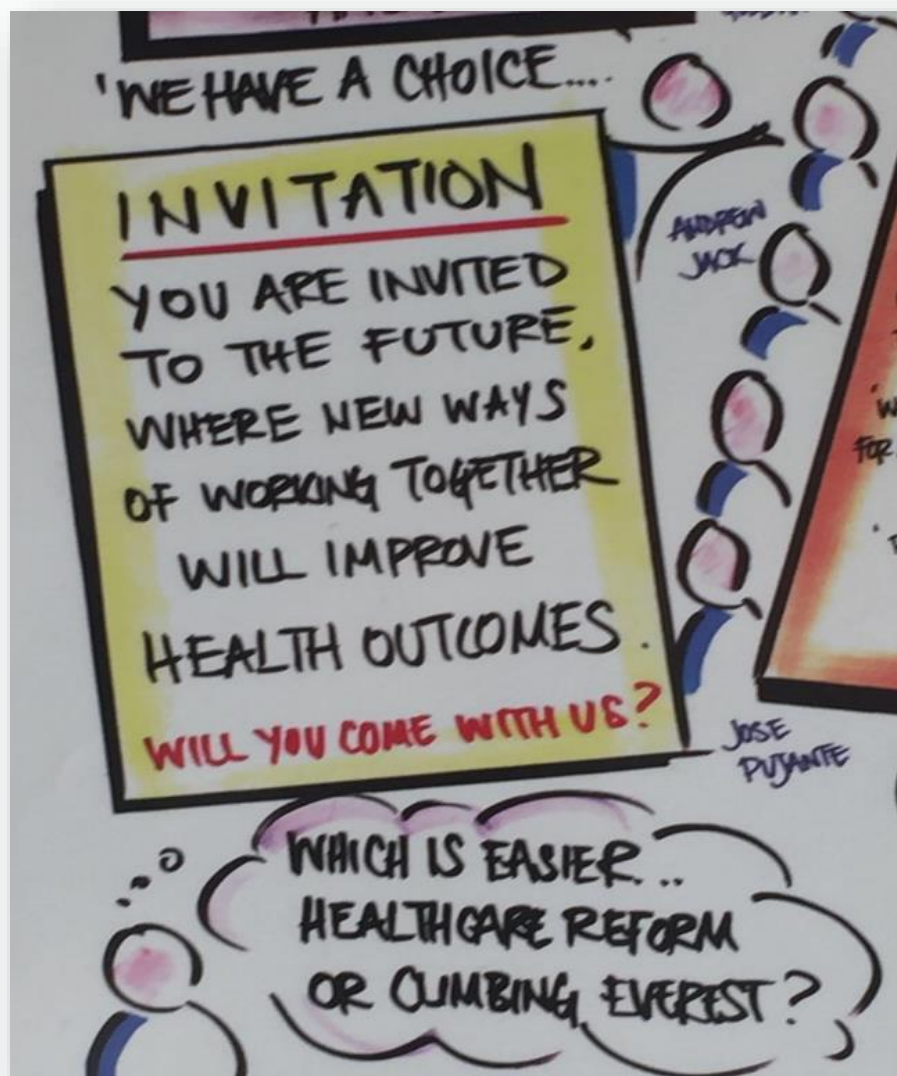 'WE HAVE A CHOICE....
INVITATION
YOU ARE INVITED
TO THE FUTURE,
WHERE NEW WAYS
OF WORKING TOGETHER
WILL IMPROVE
HEALTH OUTCOMES.
WILL YOU COME WITH US?
ANDREW
JACK
JOSE
PUJANTE
FOR
WHICH IS EASIER...
HEALTHCARE REFORM
OR CLIMBING EVEREST?